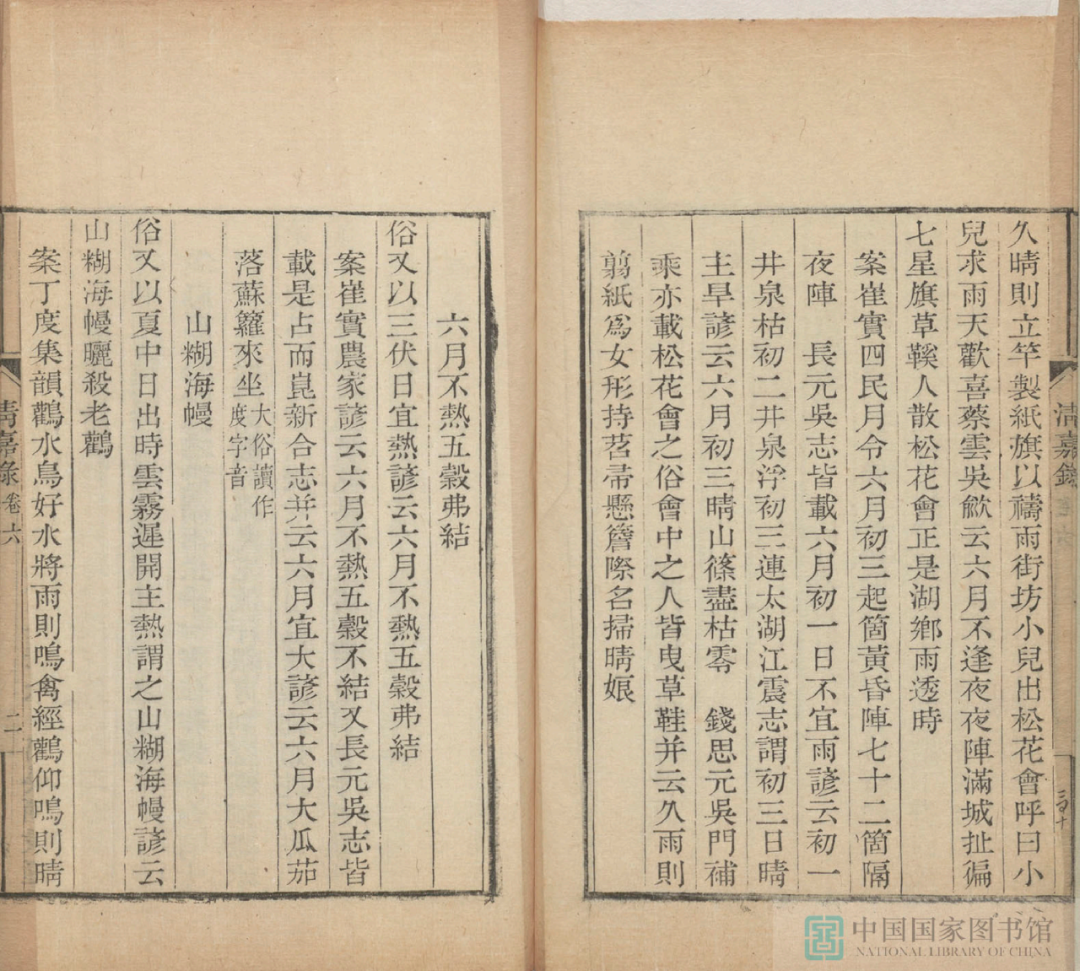 久晴則立竿製紙旗以禱雨街坊小兒出松花會呼曰小
兒求雨天歡喜蔡雲吳歈云六月不逢夜夜陣滿城扯徧
七星旗草鞵人散松花會正是湖鄉雨透時
案崔實四民月令六月初三起箇黃昏陣七十二箇隔
夜陣　長元吳志皆載六月初一日不宜雨諺云初一
井泉枯初二井泉浮初三連太湖江震志謂初三日晴
主旱諺云六月初三晴山篠盡枯零　錢思元吳門補
乘亦載松花會之俗會中之人皆曳草鞋并云久雨則
剪紙爲女形持苕帚懸簷際名掃晴娘
六月不熱五穀弗結
俗又以三伏日宜熱諺云六月不熱五穀弗結
案崔實農家諺云六月不熱五穀不結又長元吳志皆
載是占而崑新合志并云六月宜大諺云六月大瓜茄
落蘇籮來坐大俗讀作度字音
山糊海幔
俗又以夏中日出時雲霧遲開主熱謂之山糊海幔諺云
山糊海幔曬殺老鸛
案丁度集韻鸛水鳥好水將雨則鳴禽經鸛仰鳴則晴
清嘉錄
清嘉錄 卷六
二
中国国家图书馆
NATIONAL LIBRARY OF CHINA